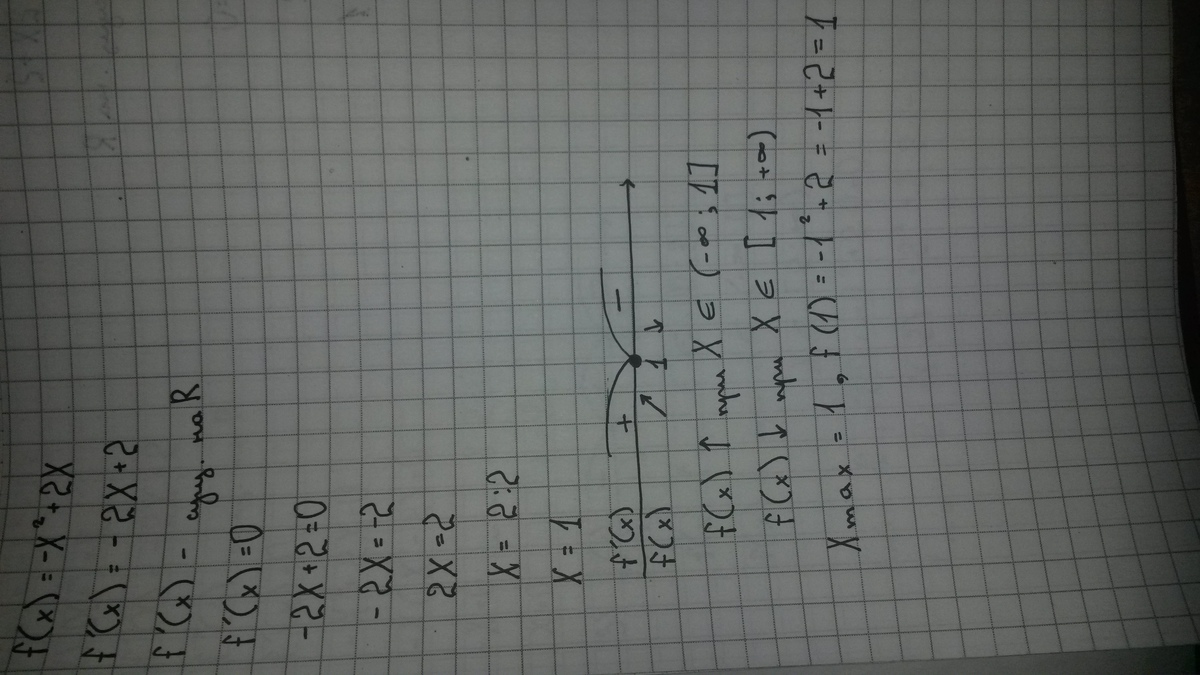 f(x) = -x² + 2x
f'(x) = -2x + 2
f'(x) - сущ. на R
f'(x) = 0
-2x + 2 = 0
-2x = -2
2x = 2
x = 2 : 2
x = 1
f'(x) + -
f(x) ↗ 1 ↘
f(x) ↑ при x ∈ (-∞; 1]
f(x) ↓ при x ∈ [1; +∞)
Xmax = 1, f(1) = -1² + 2 = -1 + 2 = 1